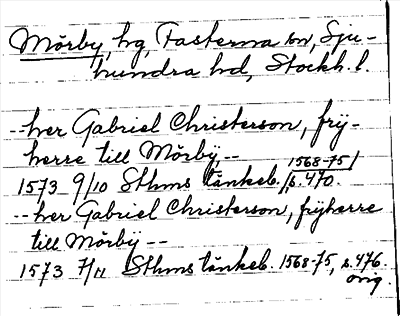 Mörby, hg, Fasterna sn, Sju-
hundra hd, Stockh. l.
--her Gabriel Christerson, frÿ-
herre till Mörbÿ-- 1568-75/
1573 9/10 Sthms tänkeb. /s. 470.
--her Gabriel Christerson, frÿherre
till Mörbÿ --
1573 7/11 Sthms tänkeb. 1568-75, s. 476.
orig.